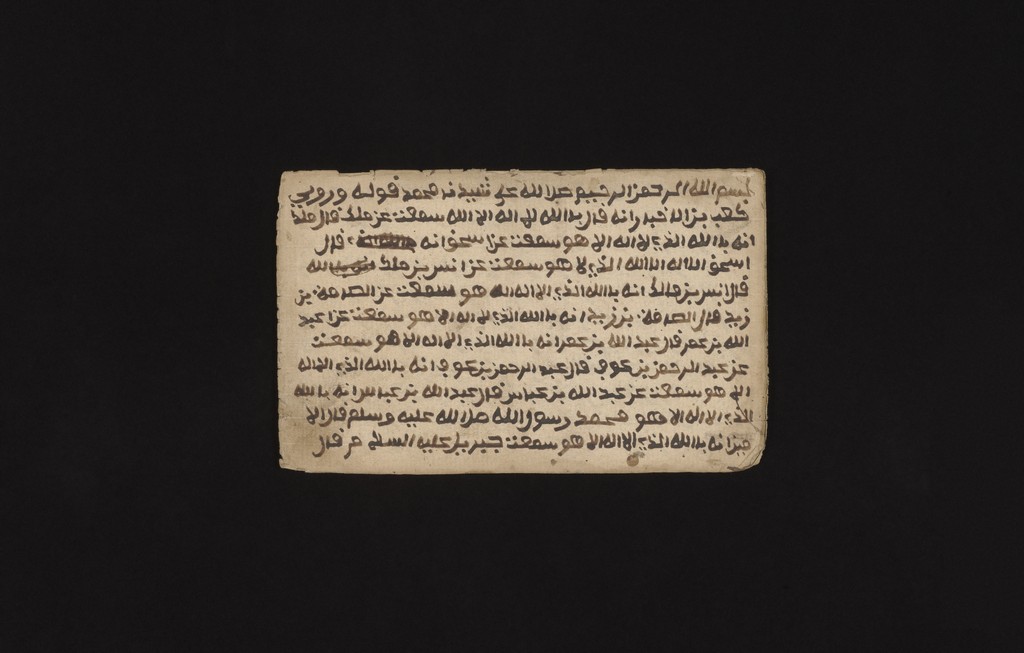 بسم الله الرحمن الرحيم صلى الله على سيدنا محمد قوله وروي
كعب بن قال بالله الاله الا الله سمعت عن ملك قال ملك
انه بالله الذي لا اله الا هو سمعت عن اسحق انه قال
اسحق الذي لا هو سمعت عن انس بن ملك بالله
قال انس بن مالك انه بالله الذي الا اله الا هو سمعت عن بن
زيد قال بن زيد انه بالله الذي لا اله الا هو سمعت عن عبد
الله بن عمر قال عبد الله بن عمر انه بالله الذي الا اله الا هو سمعت
عن عبد الرحمن بن عوف قال عبد الرحمن بن عوف انه بالله الذي الا اله
الا هو سمعت عن عبد الله بن عباس قال عبد الله بن عباس انه بالله
الذي الا اله الا هو محمد رسول الله صلى الله عليه وسلم قال الا
انه بالله الذي الا اله الا هو سمعت جبريل عليه السلام قال